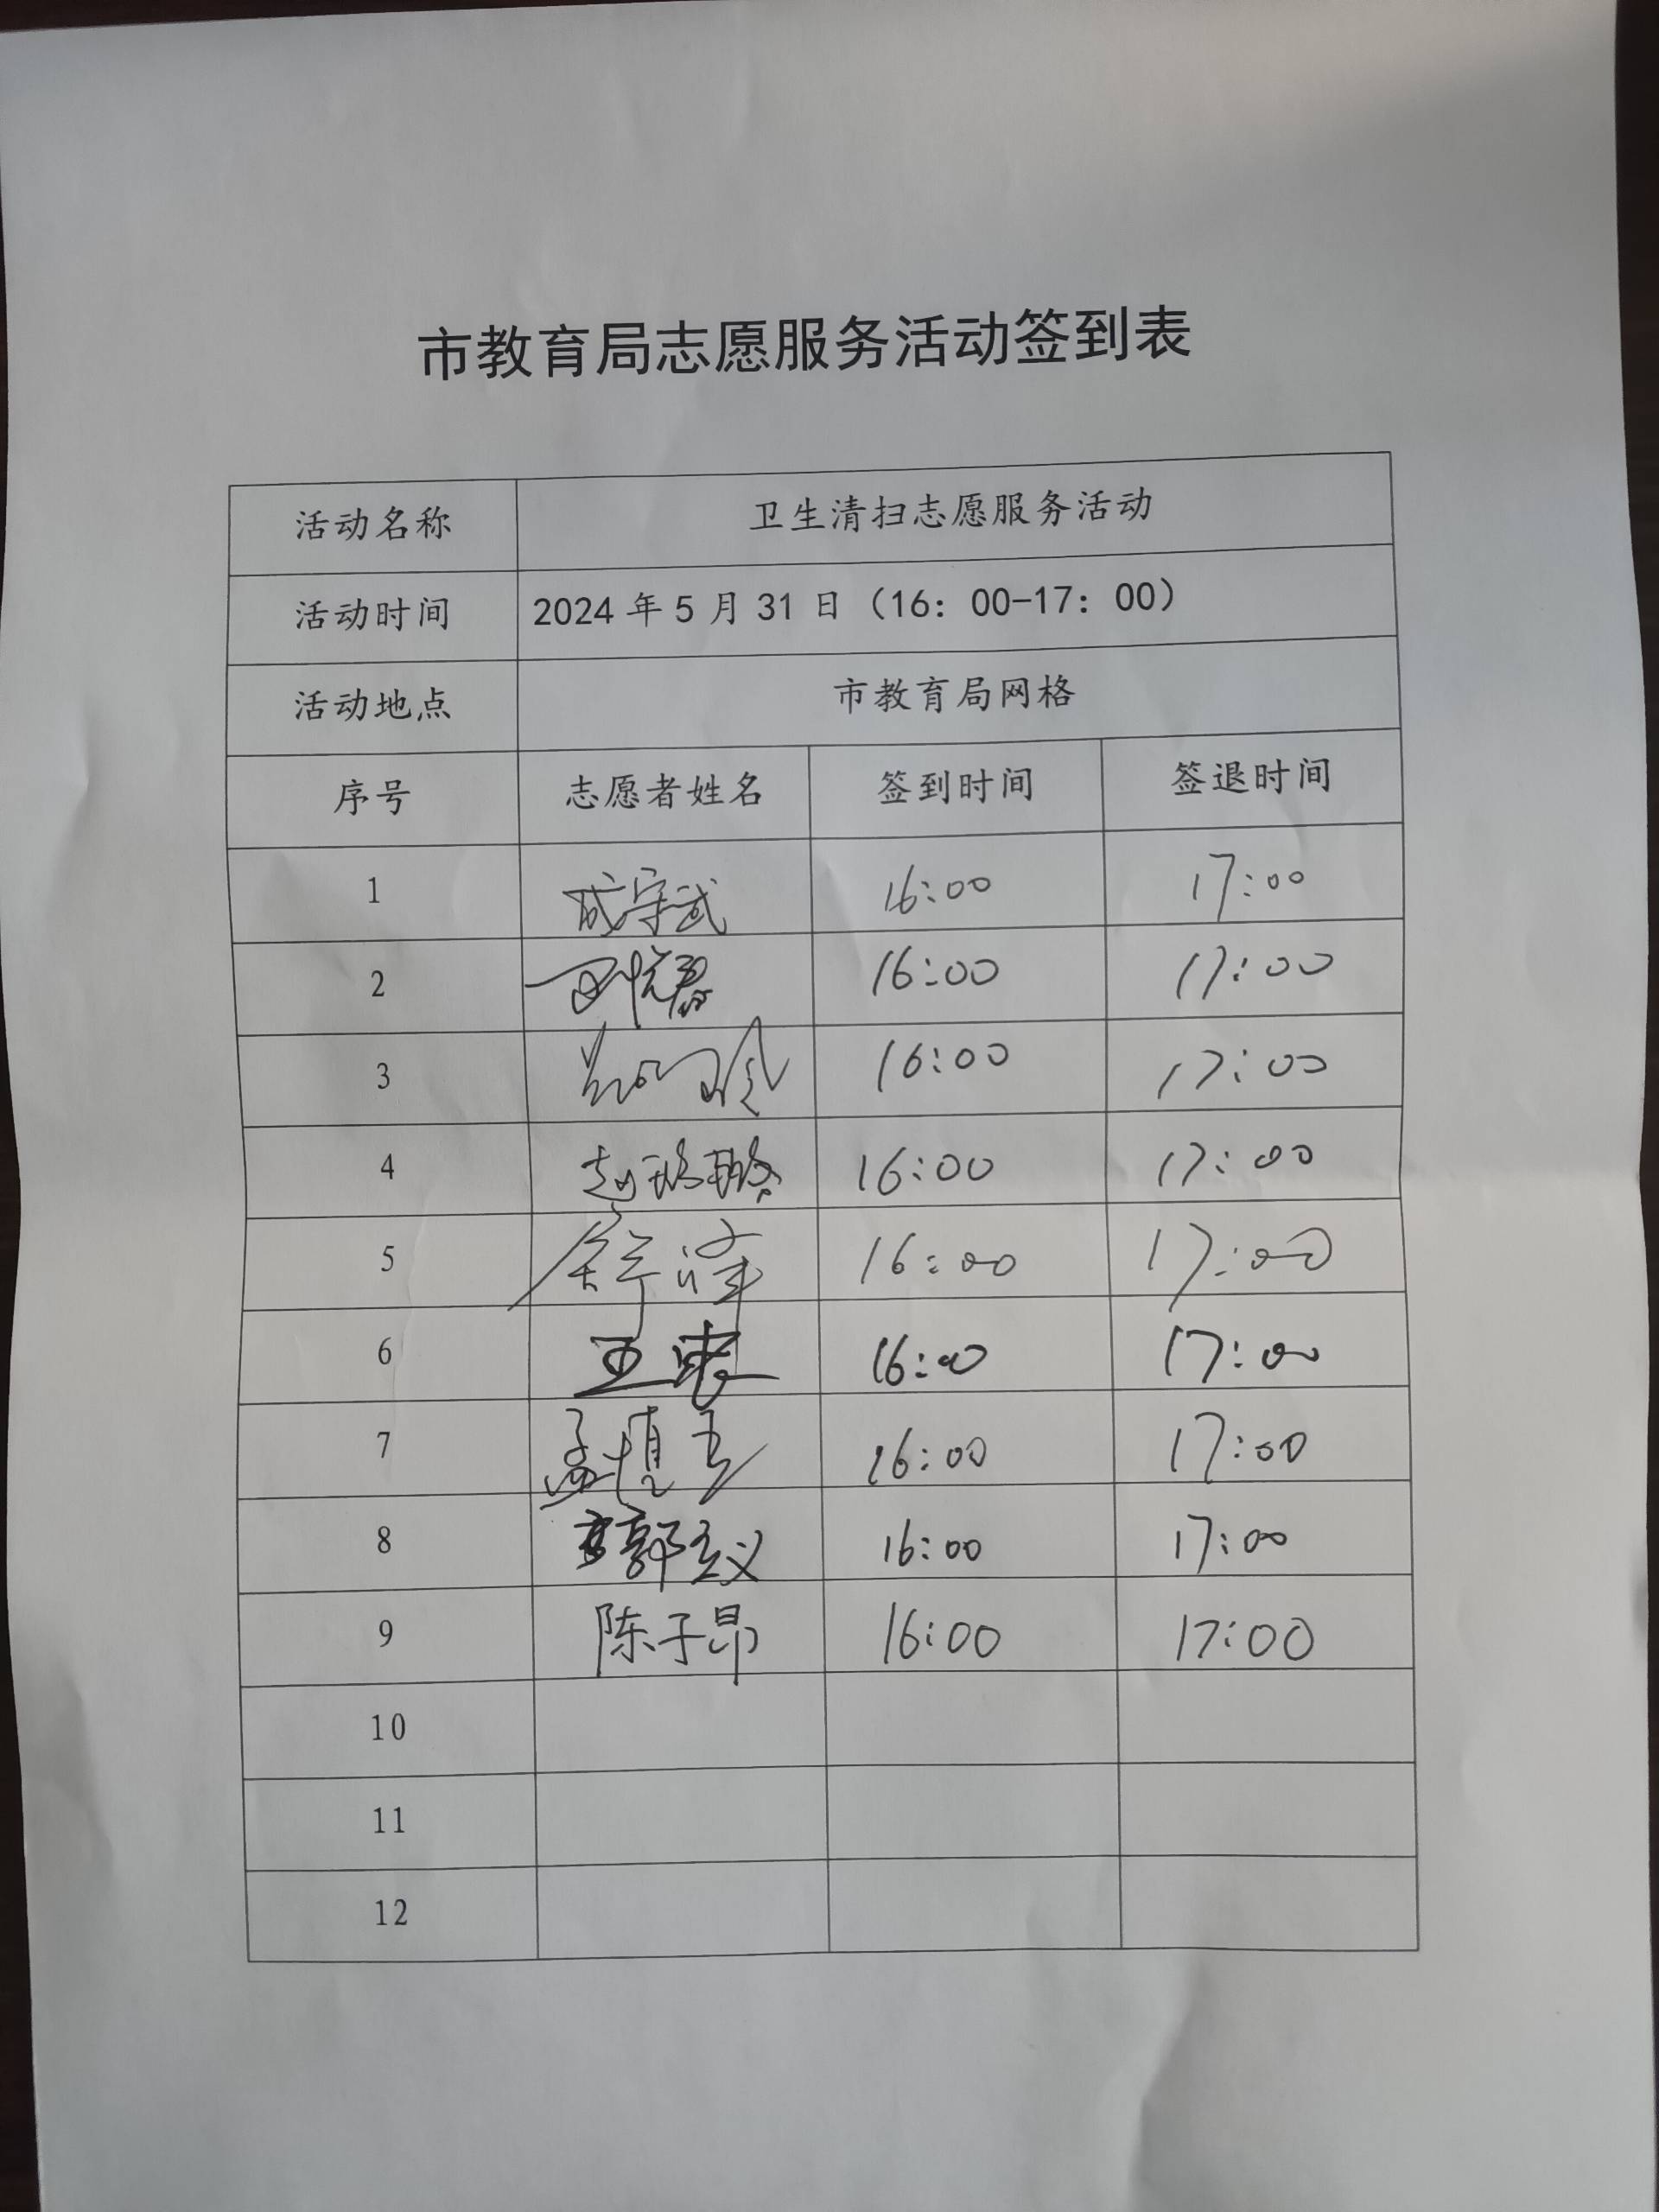 市教育局志愿服务活动签到表
活动名称 卫生清扫志愿服务活动
活动时间 2024年5月31日（16：00-17：00）
活动地点 市教育局网格
序号 志愿者姓名 签到时间 签退时间
1 成宇武 16:00 17:00
2 16:00 17:00
3 16:00 17:00
4 赵璐璐 16:00 17:00
5 舒泽 16:00 17:00
6 16:00 17:00
7 孟慎言 16:00 17:00
8 郭主义 16:00 17:00
9 陈子昂 16:00 17:00
10
11
12